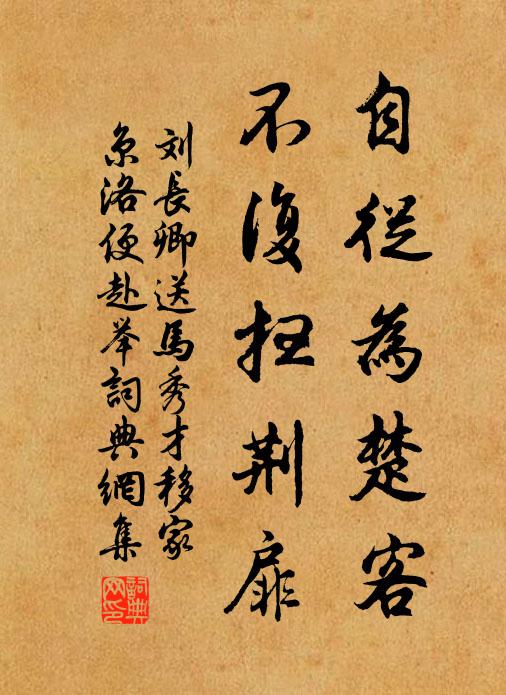 自從為楚客
不復掃荆扉
刘長卿送馬秀才移家
京洛便赴举詞典網集
詞典
网印